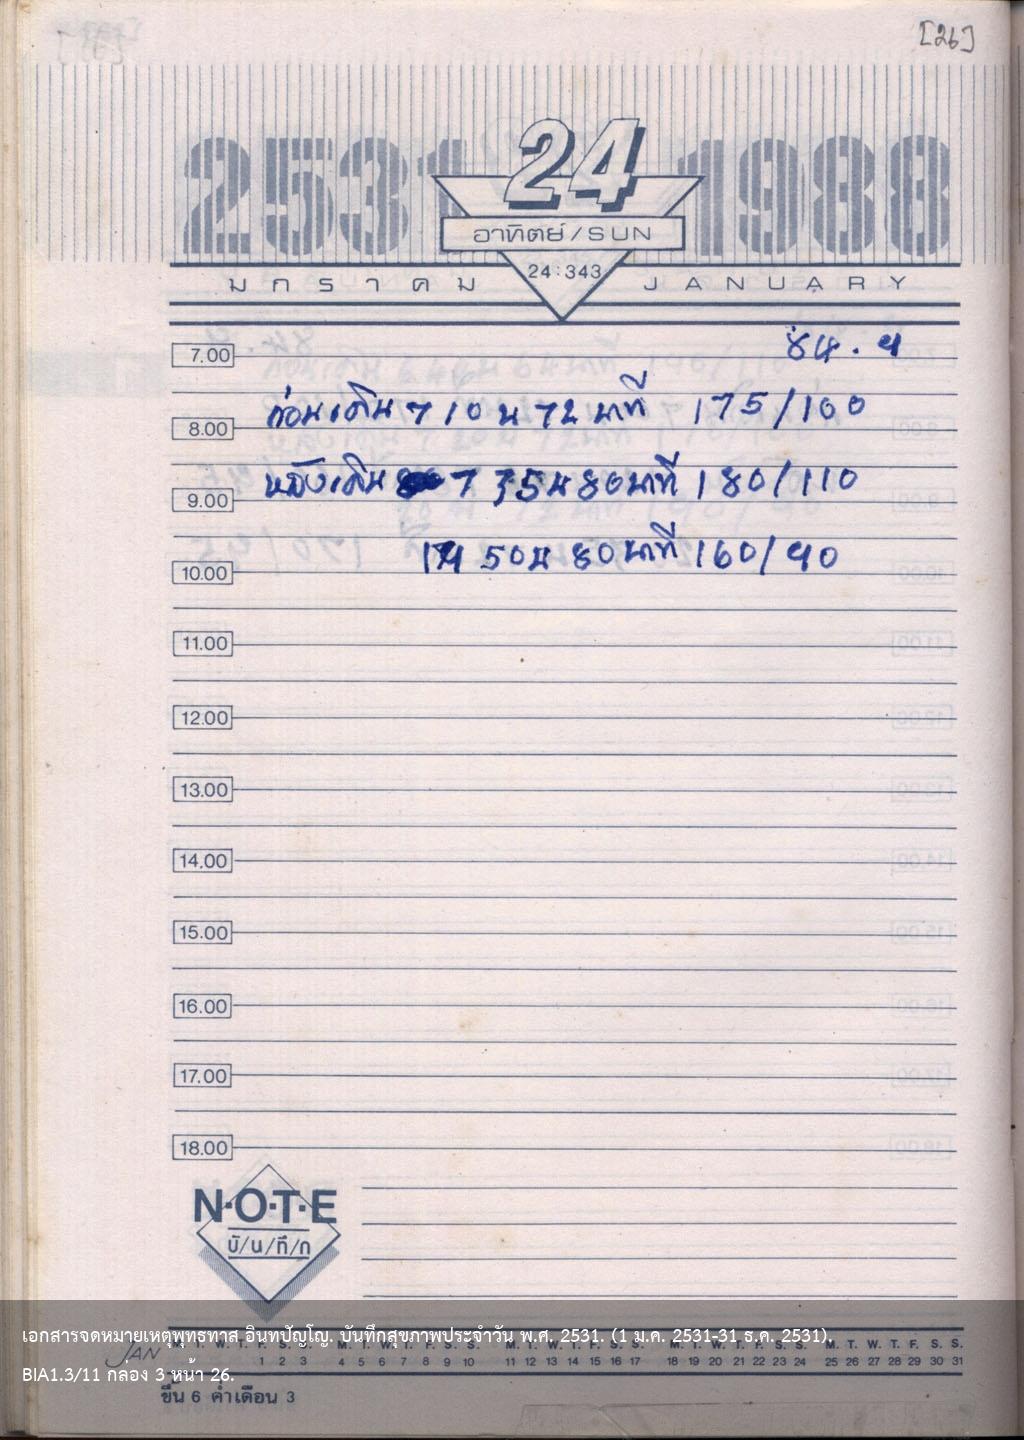 [26]
2531
24
1988
อาทิตย์/SUN
24:343
มกราคม
JANUARY
84.9
7.00
ก่อนเดิน 7 10 น 72 นาที 175/100
8.00
หลังเดิน 7 35 น 80 นาที 180/110
9.00
50 น 80 นาที 160/90
10.00
11.00
12.00
13.00
14.00
15.00
16.00
17.00
18.00
N·O·T·E
บั/น/ทึ/ก
เอกสารจดหมายเหตุพุทธทาส อินทปัญโญ. บันทึกสุขภาพประจำวัน พ.ศ. 2531. (1 ม.ค. 2531-31 ธ.ค. 2531).
JAN
M. T. W. T. F. S. S. M. T. W. T. F. S. S. M. T. W. T. F. S. S. M. T. W. T. F. S. S. M. T. W. T. F. S. S.
1 2 3 4 5 6 7 8 9 10 11 12 13 14 15 16 17 18 19 20 21 22 23 24 25 26 27 28 29 30 31
BIA1.3/11 กล่อง 3 หน้า 26.
ขึ้น 6 ค่ำเดือน 3